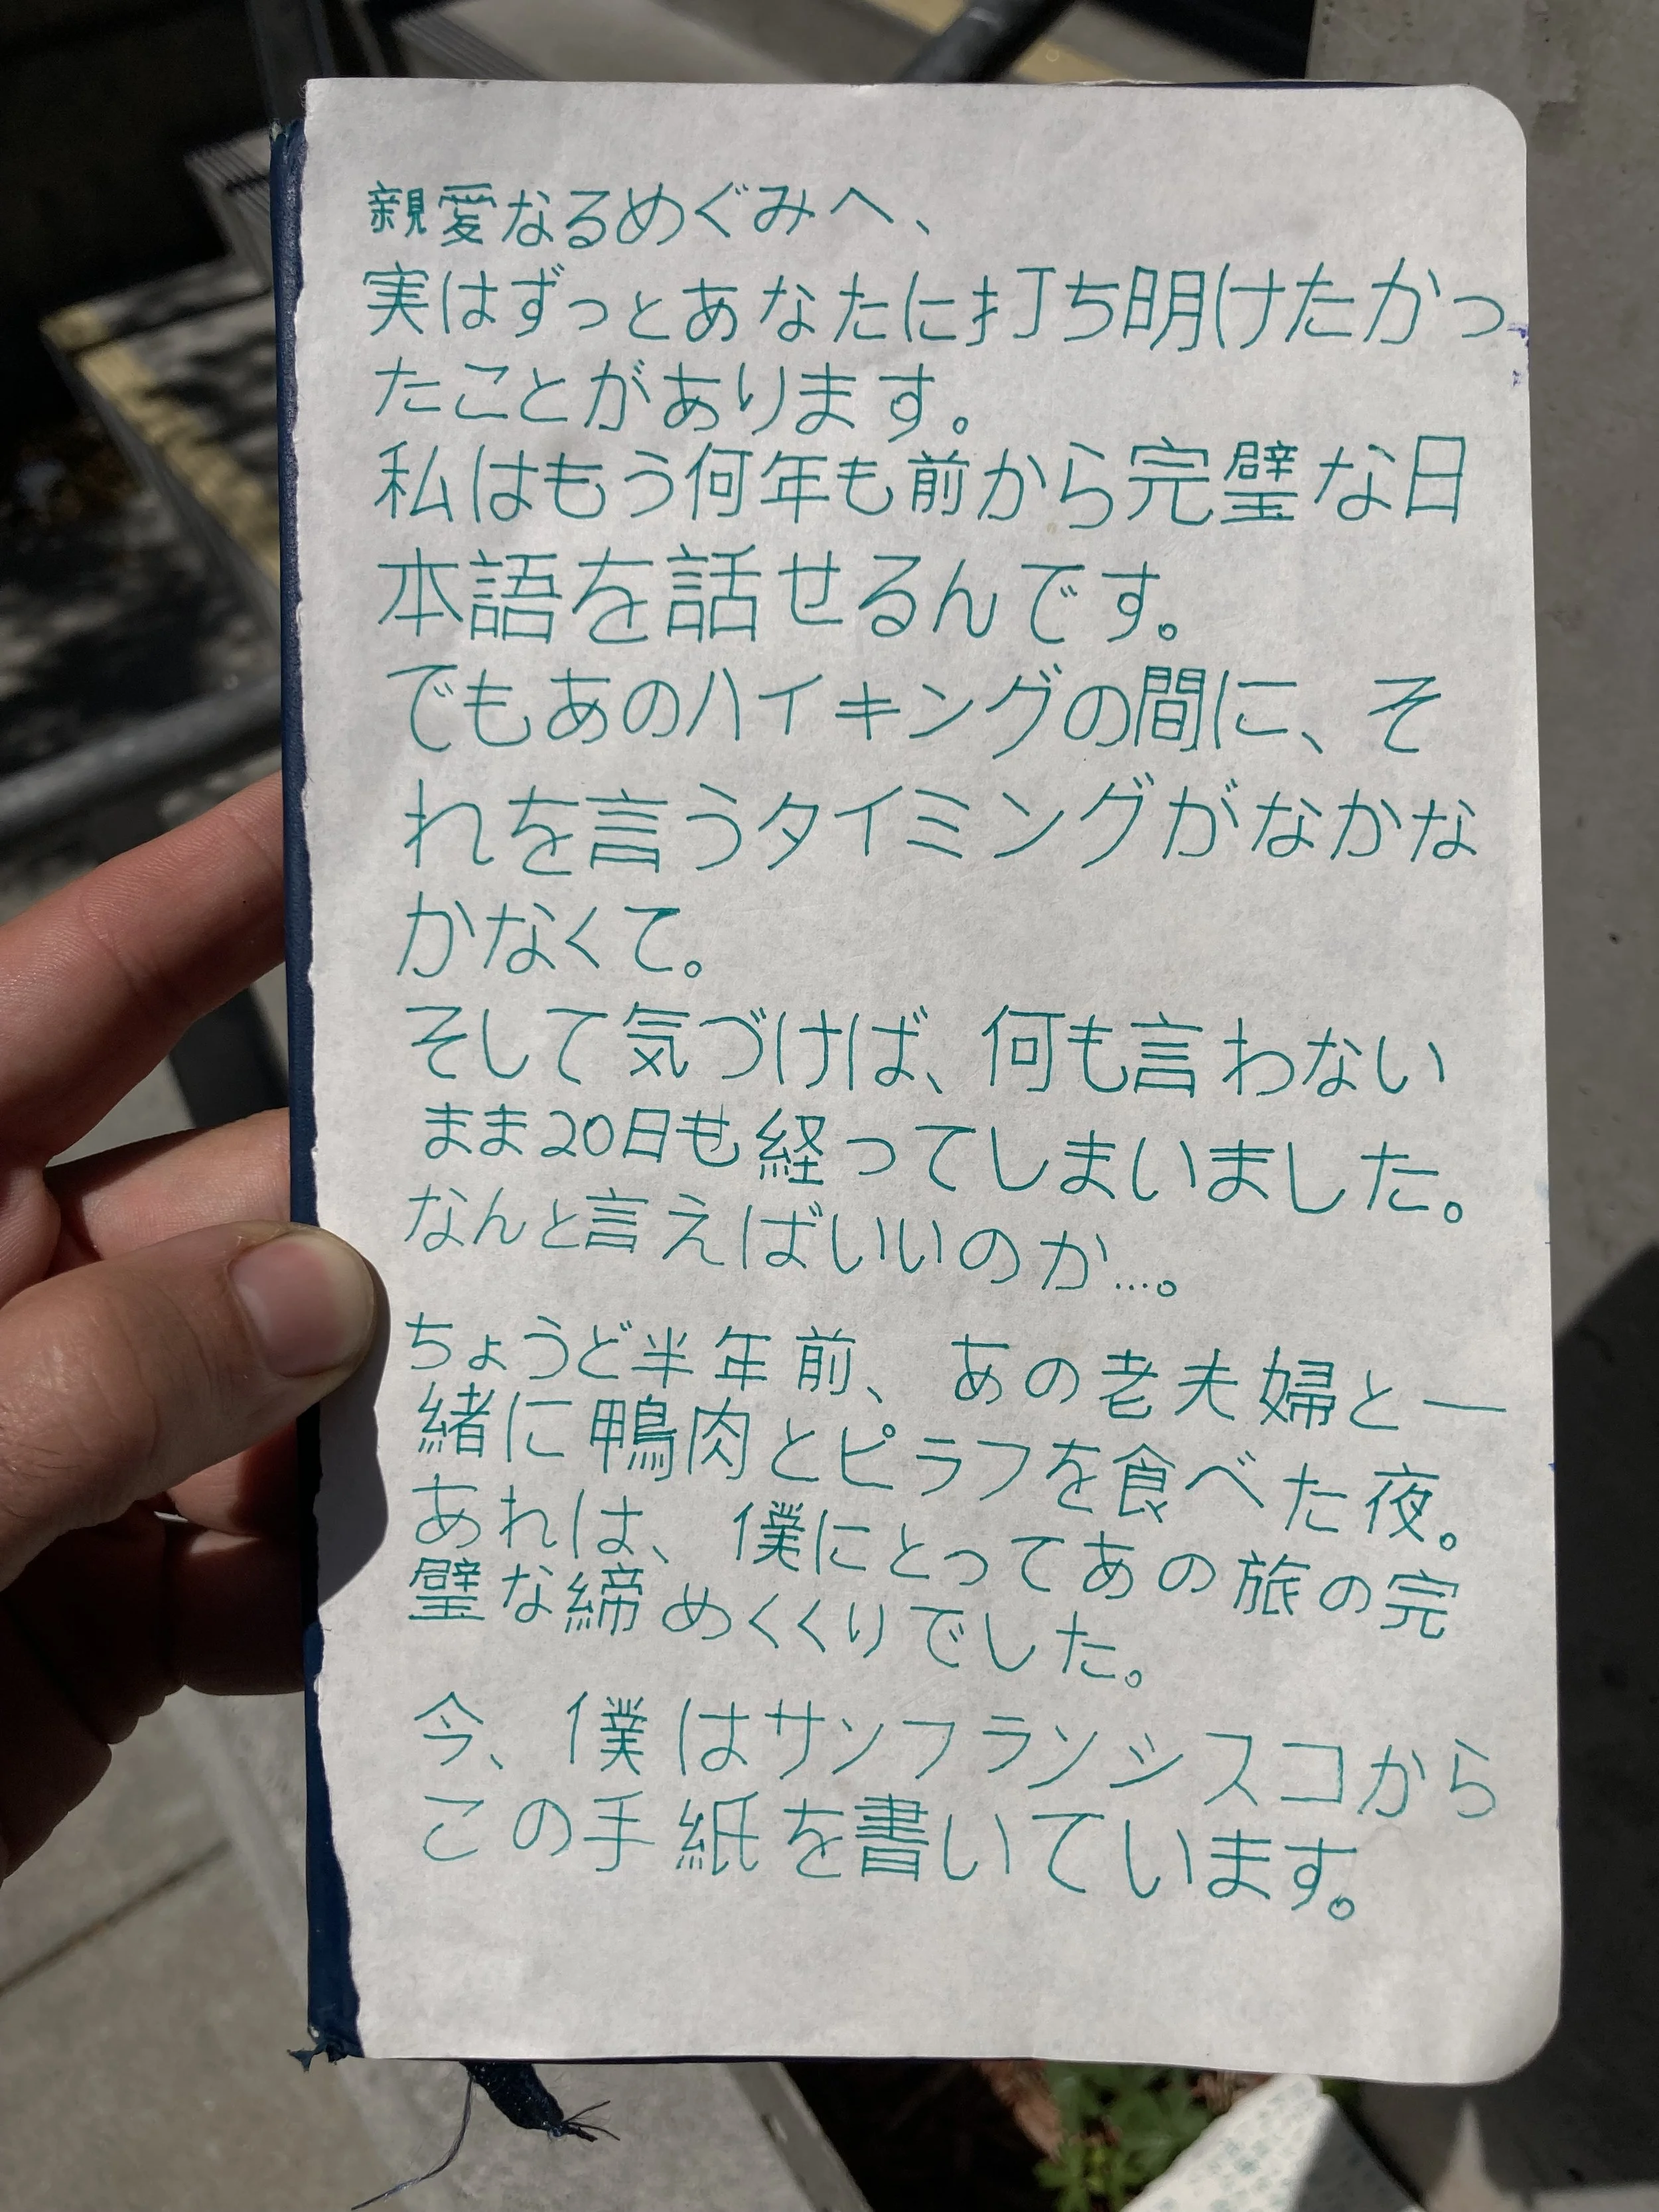 親愛なるめぐみへ、
実はずっとあなたに打ち明けたかっ
たことがあります。
私はもう何年も前から完璧な日
本語を話せるんです。
でもあのハイキングの間に、そ
れを言うタイミングがなかな
かなくて。
そして気づけば、何も言わない
まま20日も経ってしまいました。
なんと言えばいいのか…。
ちょうど半年前、あの老夫婦と一
緒に鴨肉とピラフを食べた夜。
あれは、僕にとってあの旅の完
璧な締めくくりでした。
今、僕はサンフランシスコから
この手紙を書いています。